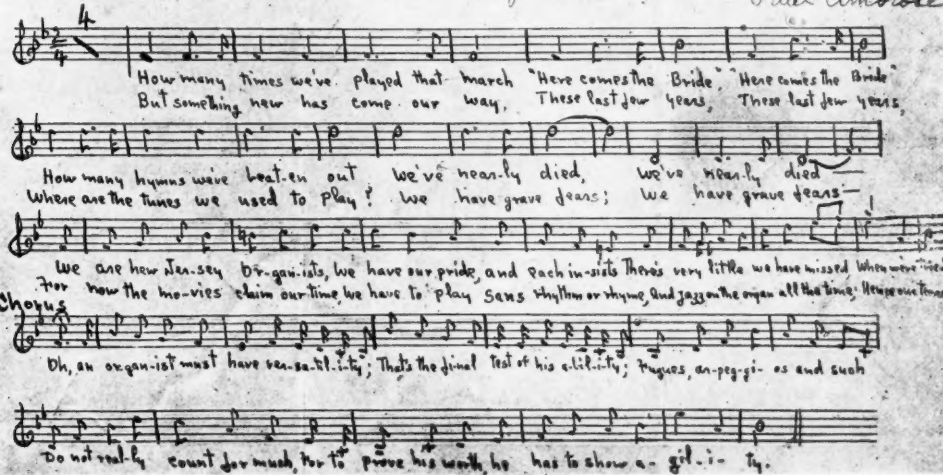 4
2/4
How many times we've played that march "Here comes the Bride" "Here comes the Bride"
But something new has come our way, These last few years, These last few years,
How many hymns we've beat-en out We've near-ly died, We've near-ly died—
Where are the tunes we used to play? We have grave fears; We have grave fears—
We are New Jer-sey Or-gan-ists, we have our pride, and each in-sists There's very little we have missed When we're
For now the mo-vies claim our time, We have to play sans rhythm or rhyme, And jazz on the organ all the time; Hence our
Chorus
Oh, an or-gan-ist must have ver-sa-til-i-ty; That's the final test of his a-bil-i-ty; Fugues, ar-peg-gi-os and such
Do not real-ly count for much, For to prove his worth, he has to show a-gil-i-ty.